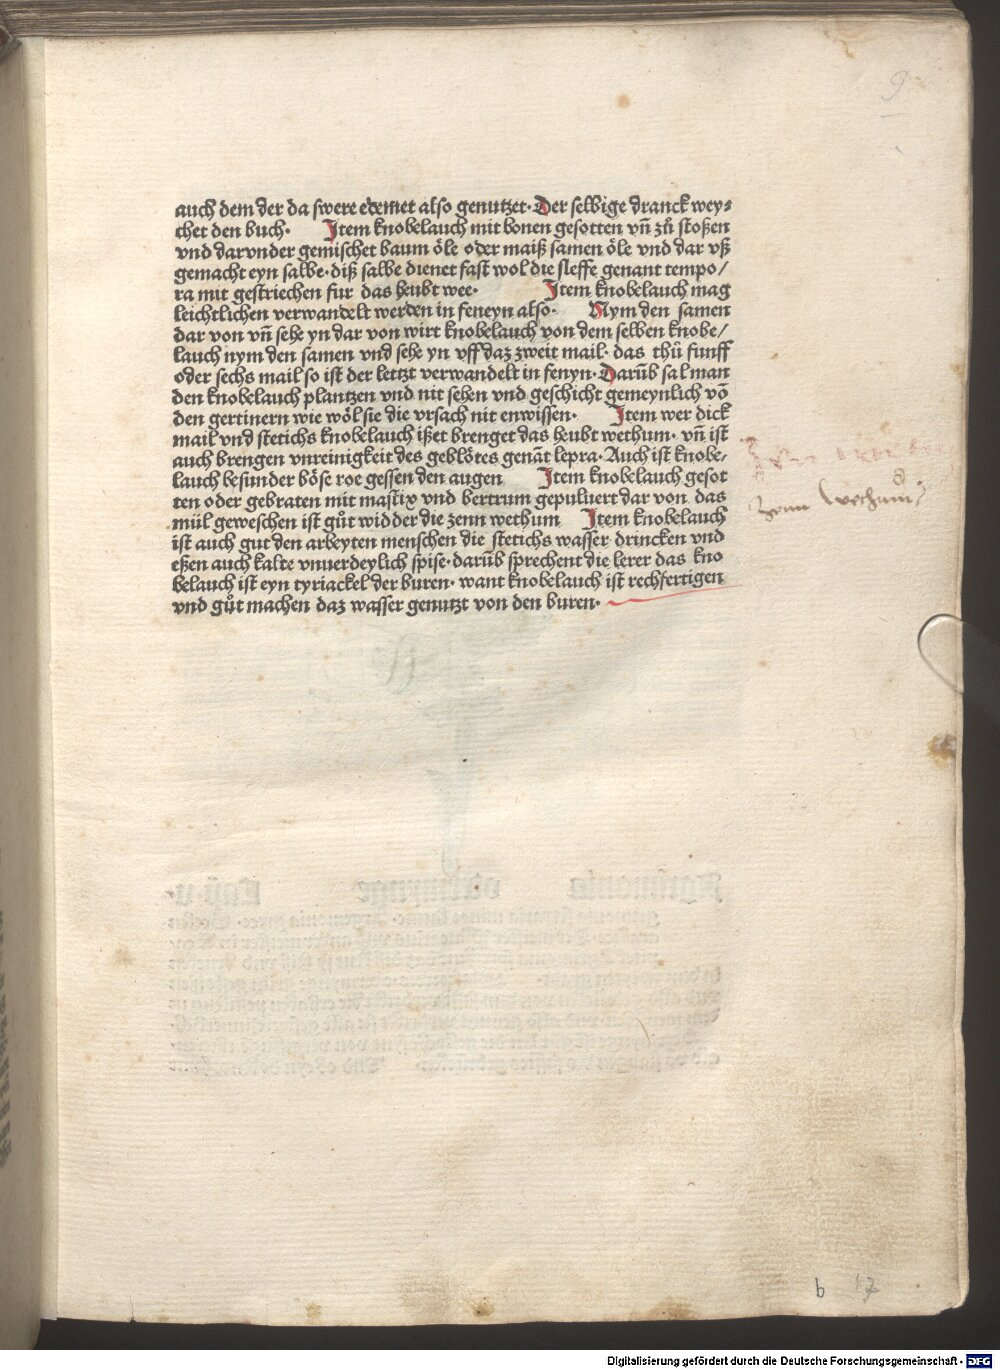 9
auch dem der da swere edemet also genutzet· Der selbige dranck wey⸗
chet den buch· Item knobelauch mit bonen gesotten vñ zů stoßen
vnd darvnder gemischet baum öle oder maiß samen öle vnd dar vß
gemacht eyn salbe· diß salbe dienet fast wol die sleffe genant tempo/
ra mit gestriechen fur das heubt wee· Item knobelauch mag
leichtlichen verwandelt werden in feneyn also· Nym den samen
dar von vñ sehe yn dar von wirt knobelauch von dem selben knobe/
lauch nym den samen vnd sehe yn vff daz zweit mail· das thů funff
oder sechs mail so ist der letzt verwandelt in fenyn· Darūb sal man
den knobelauch plantzen vnd nit sehen vnd geschicht gemeynlich vō
den gertinern wie wöl sie die vrsach nit enwissen· Item wer dick
mail vnd stetichs knobelauch ißet brenget das heubt wethum· vñ ist
auch brengen vnreinigkeit des geblötes genāt lepra· Auch ist knobe/
lauch besunder böse roe gessen den augen Item knobelauch gesot
ten oder gebraten mit mastix vnd bertrum gepuluert dar von das
mül geweschen ist gůt widder die zenn wethum Item knobelauch
ist auch gut den arbeyten menschen die stetichs wasser drincken vnd
eßen auch kalte vnuerdeylich spise· darūb sprechent die lerer das kno
belauch ist eyn tyriackel der buren· want knobelauch ist rechfertigen
vnd gůt machen daz wasser genutzt von den buren·
zenn wethum
b 17
Digitalisierung gefördert durch die Deutsche Forschungsgemeinschaft - DFG